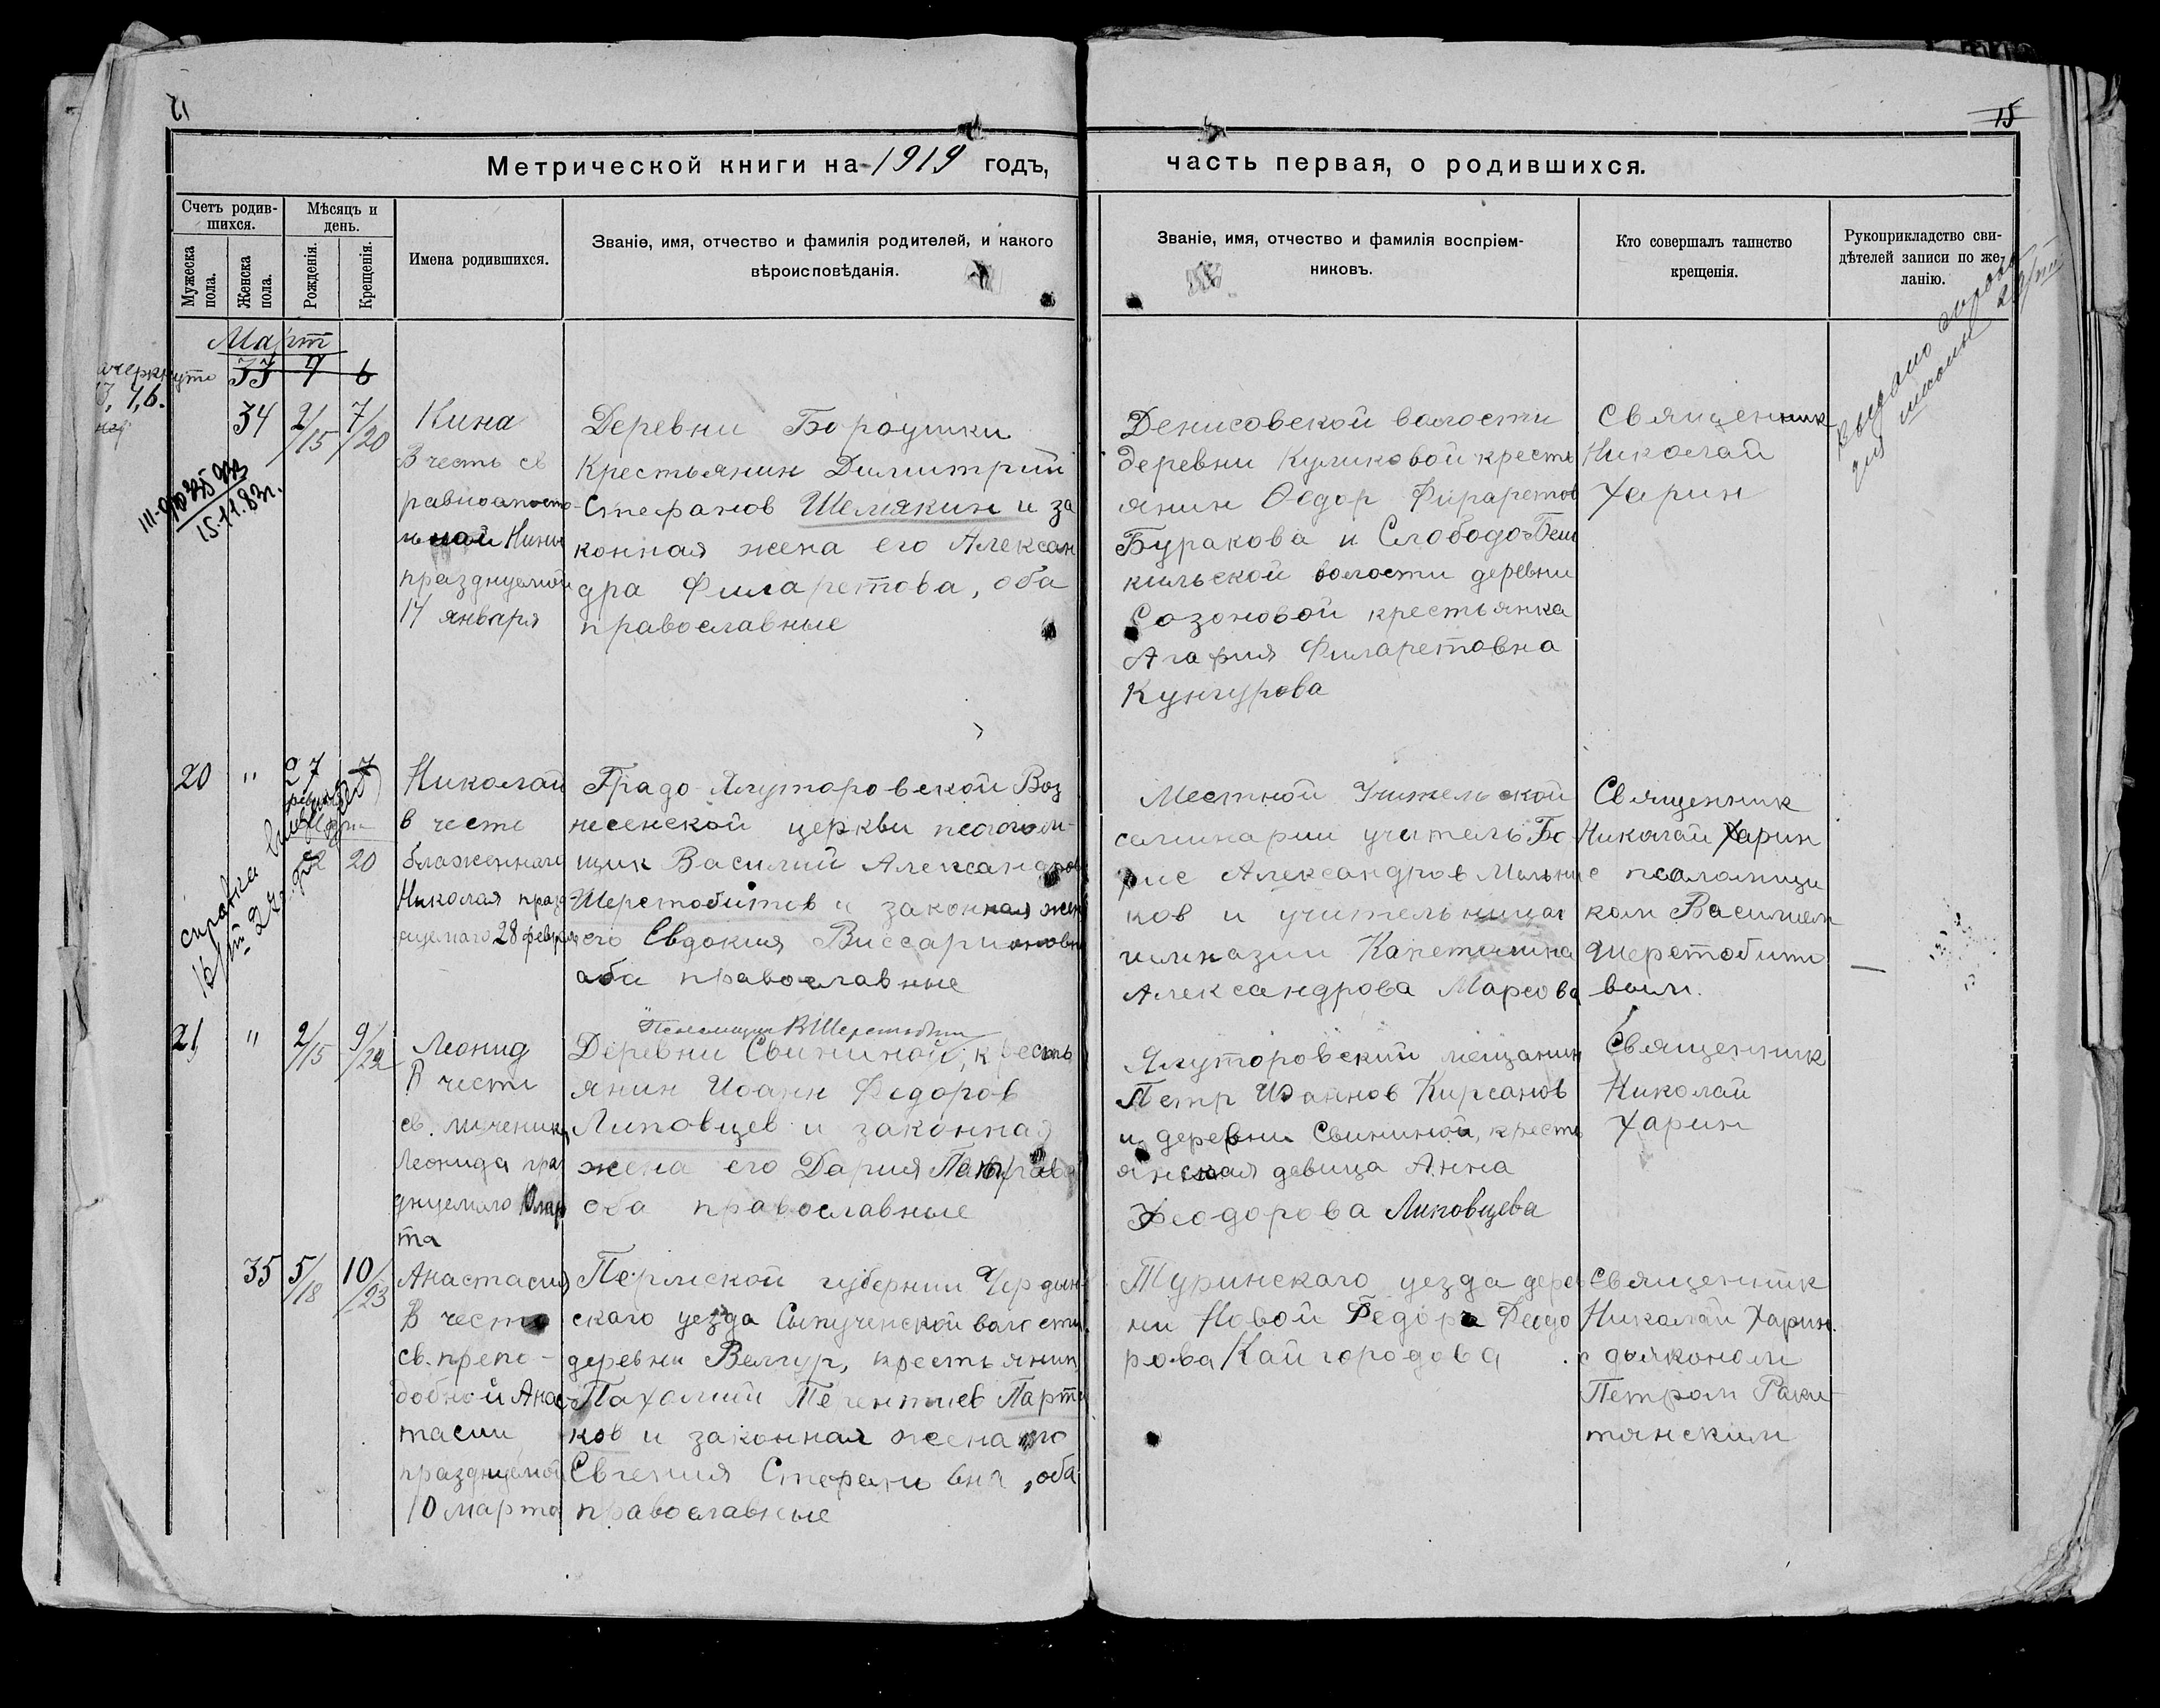 15
Метрической книги на 1919 годъ,
часть первая, о родившихся.
Счетъ родив-
шихся.
Мужеска
пола.
Женска
пола.
Мѣсяцъ и
день.
Рожденія.
Крещенія.
Имена родившихся.
Званіе, имя, отчество и фамилія родителей, и какого
вѣроисповѣданія.
Званіе, имя, отчество и фамилія воспріем-
никовъ.
Кто совершалъ таинство
крещенія.
Рукоприкладство сви-
дѣтелей записи по же-
ланію.
Март
33 7 6
34 2/15 7/20
Нина
В честь св
равноапосто-
льной Нины
празднуемой
14 января
Деревни Бороушки
Крестьянин Димитрий
Стефанов Шемякин и за
конная жена его Алексан
дра Филаретова, оба
православные
Денисовской волости
деревни Куликовой кресть
янин Федор Фираретов
Буракова и Слободо-Беш
кильской волости деревни
Созоновой крестьянка
Агафия Филаретовна
Кунгурова
Священник
Николай
Харин
Выдано
для школы
15.11.83г.
20 " 27 7
20
Николай
в честь
блаженнаго
Николая празд
нуемаго 28 февраля
Градо-Ялуторовской Воз
несенской церкви псаломщ-
щик Василий Александров
Шерстобитов и законная жена
его Евдокия Виссарионовна
оба православные
Местной Учительской
семинарии учитель Бо
рис Александров Мильни
ков и учительница
гимназии Капетилина
Александрова Марсова
Священник
Николай Харин
с псаломщи
ком Василием
Шерстобито
вым.
справка
21 " 2/15 9/22
Леонид
В честь
св. мученика
Леонида праз
днуемаго мар
та
Псаломщик В Шерстобитов
Деревни Свининой, кресть
янин Иоанн Федоров
Липовцев и законная
жена его Дария
оба православные
Ялуторовский мещанин
Петр Иоаннов Кирсанов
и деревни Свининой, кресть
янская девица Анна
Феодорова Липовцева
Священник
Николай
Харин
35 5/18 10/23
Анастасия
В честь
св. препо-
добной Анас
тасии
празднуемой
10 марта
Пермской губернии Чердын
скаго уезда Сыпученской волости
деревни Велгур, крестьянин
Пахомий Терентиев Парти
ков и законная жена его
Евгения Стефановна, оба
православные
Туринскаго уезда дерев
ни Новой Федора Феодо
рова Кайгородова
Священник
Николай Харин
с дияконом
Петром Раки-
тянским